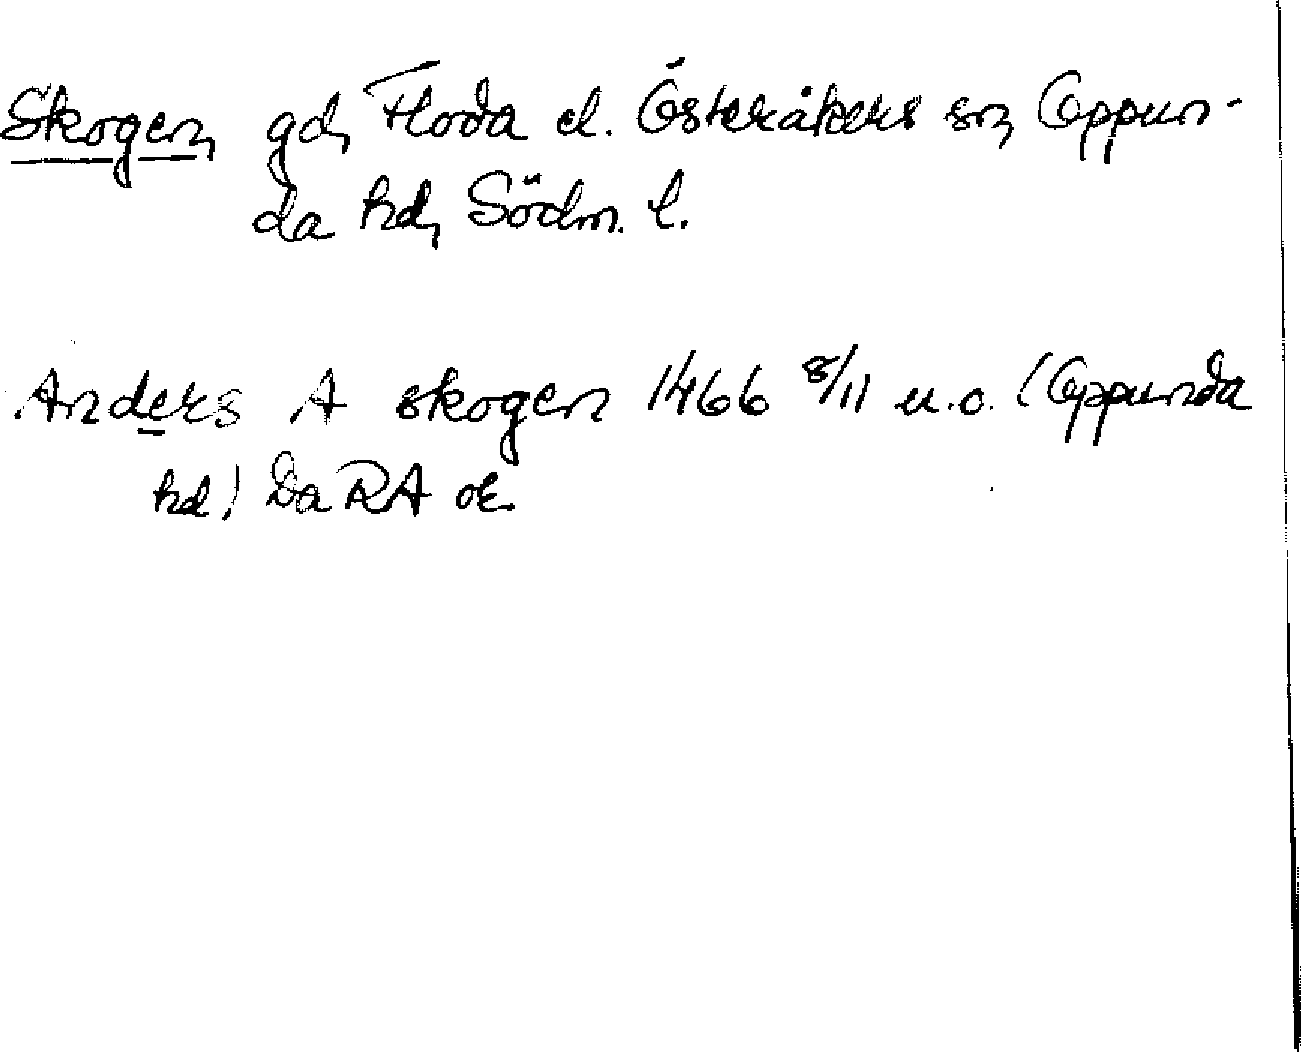 Skogen, gd, Floda el. Österåkers sn, Oppun-
da hd, Södm. l.
Anders A skogen 1466 8/11 u.o. (Oppunda
hd) Da RA or.